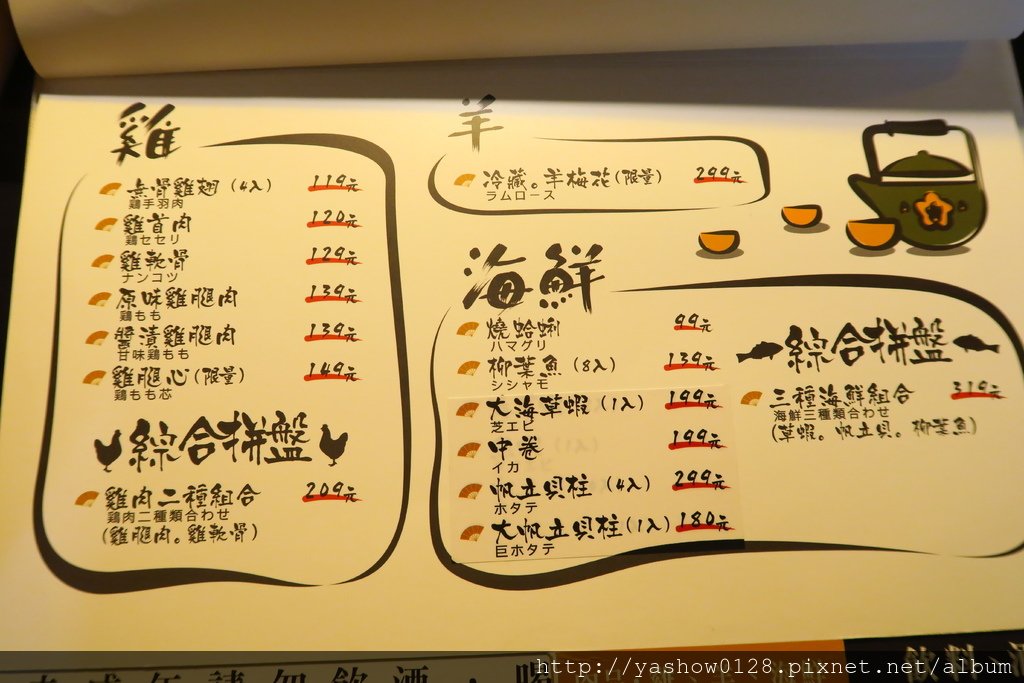 雞
無骨雞翅(4入) 119元
鶏手羽肉
雞首肉 120元
鶏セセリ
雞軟骨 129元
ナンコツ
原味雞腿肉 139元
鶏もも
醬漬雞腿肉 139元
甘味鶏もも
雞腿心(限量) 149元
鶏もも芯
綜合拼盤
雞肉二種組合 209元
鶏肉二種類合わせ
(雞腿肉。雞軟骨)
羊
冷藏。羊梅花(限量) 299元
ラムロース
海鮮
燒蛤蜊 99元
ハマグリ
柳葉魚(8入) 139元
シシャモ
大海草蝦(1入) 199元
芝エビ
中卷 199元
イカ
帆立貝柱(4入) 299元
ホタテ
大帆立貝柱(1入) 180元
巨ホタテ
綜合拼盤
三種海鮮組合 319元
海鮮三種類合わせ
(草蝦。帆立貝。柳葉魚)
http://yashow0128.pixnet.net/album